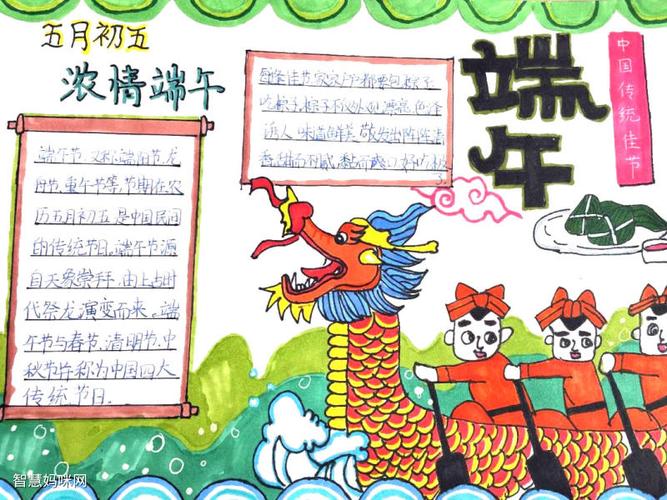 五月初五
浓情端午
端午
中国传统佳节
每条佳节家家户户都要包粽子
吃粽子,粽子不仅外观漂亮,色泽
诱人,味道鲜美,散发出阵阵清
香,甜而不腻,黏而
好吃极
了。
端午节,又称端阳节,龙
舟节,重午节等,节期在农
历五月初五,是中国民间
的传统节日。端午节源
自天象崇拜,由上古时
代祭龙演变而来。端
午节与春节、清明节、中
秋节并称为中国四大
传统节日。
智慧妈咪网